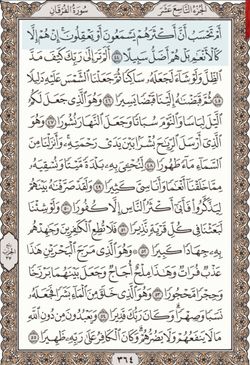 الجزء التاسع عشر
سورة الفرقان
أَمْ تَحْسَبُ أَنَّ أَكْثَرَهُمْ يَسْمَعُونَ أَوْ يَعْقِلُونَ إِنْ هُمْ إِلَّا
كَٱلْأَنْعَٰمِ بَلْ هُمْ أَضَلُّ سَبِيلًا ٤٤ أَلَمْ تَرَ إِلَىٰ رَبِّكَ كَيْفَ مَدَّ
ٱلظِّلَّ وَلَوْ شَآءَ لَجَعَلَهُۥ سَاكِنًا ثُمَّ جَعَلْنَا ٱلشَّمْسَ عَلَيْهِ دَلِيلًا
٤٥ ثُمَّ قَبَضْنَٰهُ إِلَيْنَا قَبْضًا يَسِيرًا ٤٦ وَهُوَ ٱلَّذِى جَعَلَ لَكُمُ
ٱلَّيْلَ لِبَاسًا وَٱلنَّوْمَ سُبَاتًا وَجَعَلَ ٱلنَّهَارَ نُشُورًا ٤٧ وَهُوَ
ٱلَّذِىٓ أَرْسَلَ ٱلرِّيَٰحَ بُشْرًۢا بَيْنَ يَدَىْ رَحْمَتِهِۦ وَأَنزَلْنَا مِنَ
ٱلسَّمَآءِ مَآءً طَهُورًا ٤٨ لِّنُحْـِۧىَ بِهِۦ بَلْدَةً مَّيْتًا وَنُسْقِيَهُۥ
مِمَّا خَلَقْنَآ أَنْعَٰمًا وَأَنَاسِىَّ كَثِيرًا ٤٩ وَلَقَدْ صَرَّفْنَٰهُ بَيْنَهُمْ
لِيَذَّكَّرُوا۟ فَأَبَىٰٓ أَكْثَرُ ٱلنَّاسِ إِلَّا كُفُورًا ٥٠ وَلَوْ شِئْنَا
لَبَعَثْنَا فِى كُلِّ قَرْيَةٍ نَّذِيرًا ٥١ فَلَا تُطِعِ ٱلْكَٰفِرِينَ وَجَٰهِدْهُم
بِهِۦ جِهَادًا كَبِيرًا ٥٢ وَهُوَ ٱلَّذِى مَرَجَ ٱلْبَحْرَيْنِ هَٰذَا
عَذْبٌ فُرَاتٌ وَهَٰذَا مِلْحٌ أُجَاجٌ وَجَعَلَ بَيْنَهُمَا بَرْزَخًا
وَحِجْرًا مَّحْجُورًا ٥٣ وَهُوَ ٱلَّذِى خَلَقَ مِنَ ٱلْمَآءِ بَشَرًا فَجَعَلَهُۥ
نَسَبًا وَصِهْرًا وَكَانَ رَبُّكَ قَدِيرًا ٥٤ وَيَعْبُدُونَ مِن دُونِ ٱللَّهِ
مَا لَا يَنفَعُهُمْ وَلَا يَضُرُّهُمْ وَكَانَ ٱلْكَافِرُ عَلَىٰ رَبِّهِۦ ظَهِيرًا ٥٥
٣٦٤